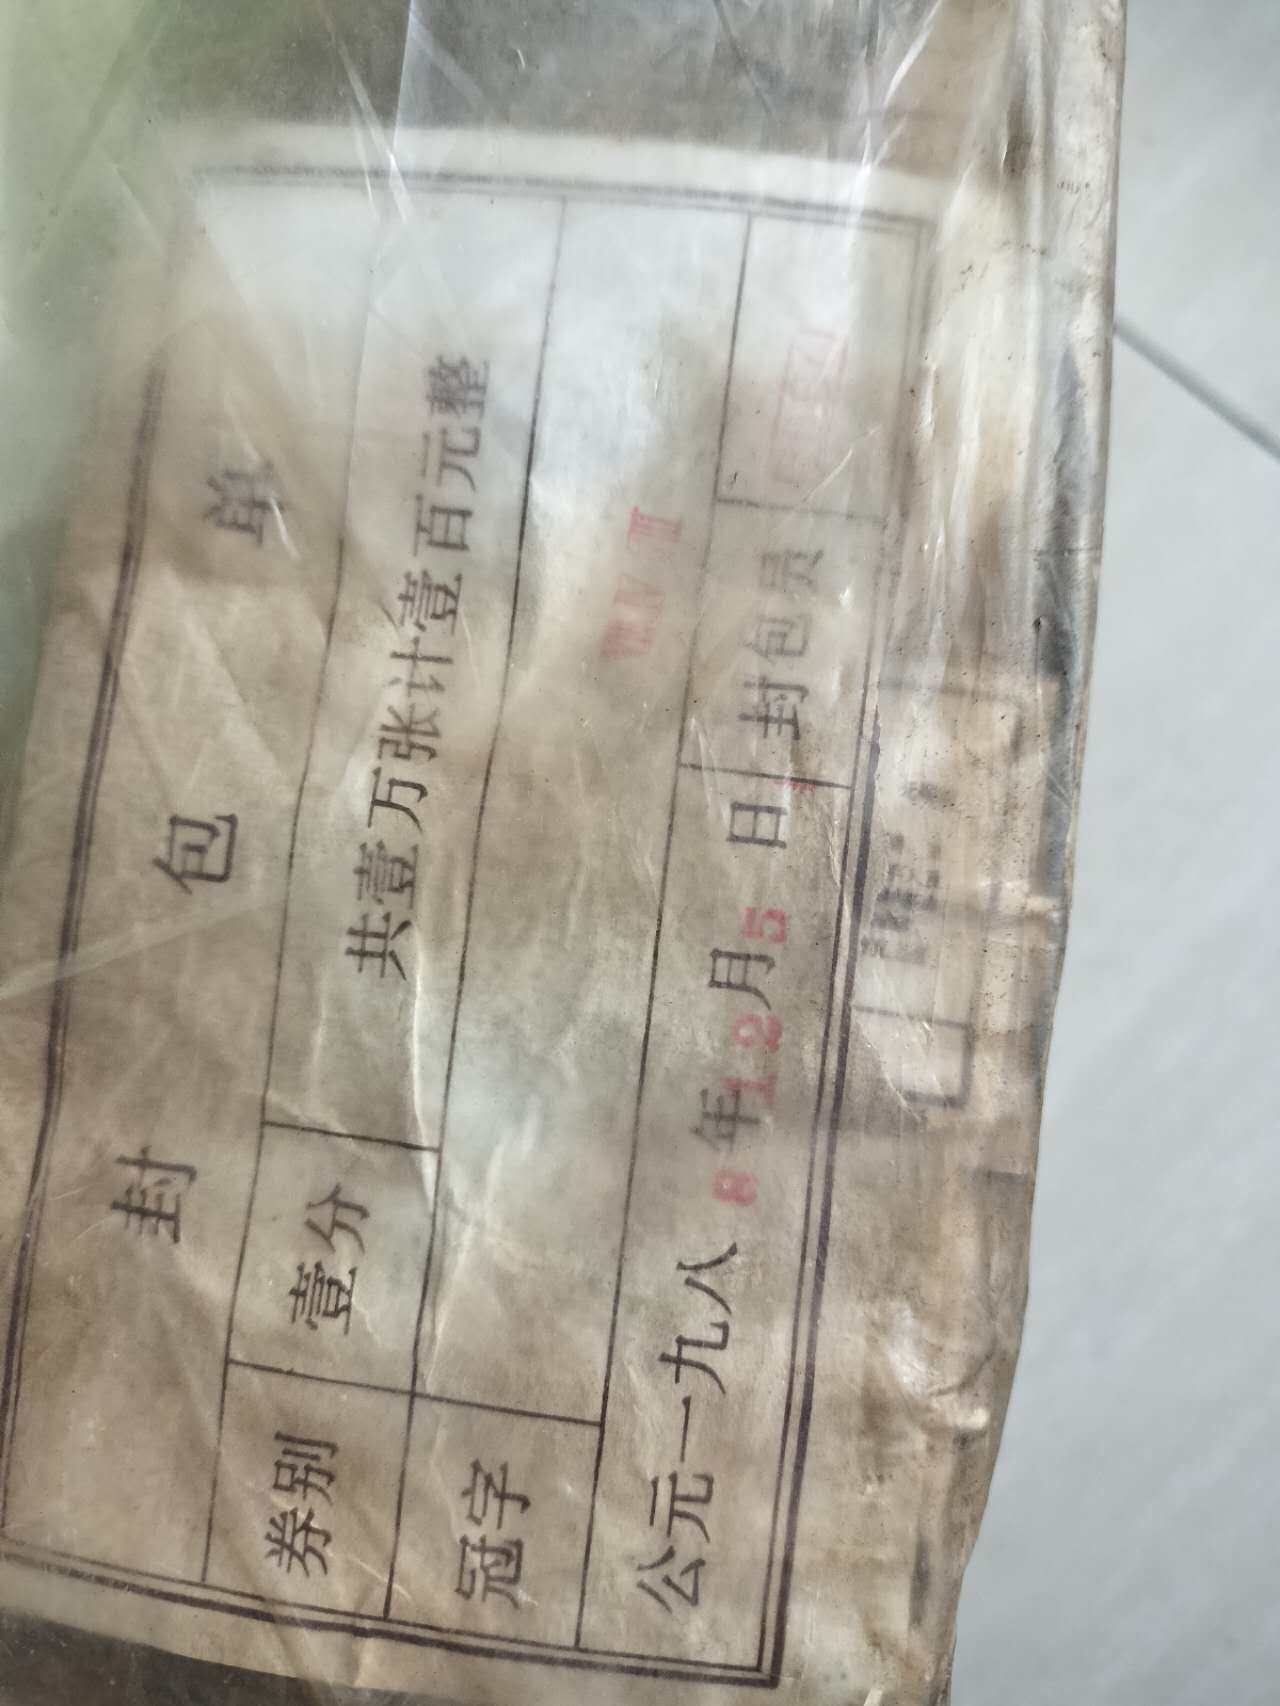 封包单
券别 壹分 共壹万张计壹百元整
冠字
公元一九八8年12月5日 封包员